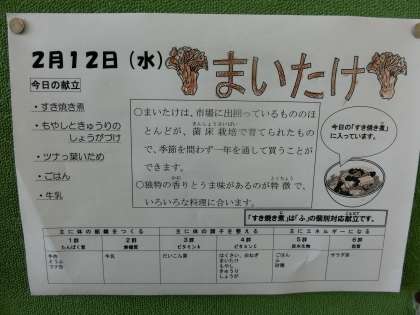 2月12日(水)
まいたけ
今日の献立
・すき焼き煮
・もやしときゅうりの
しょうがづけ
・ツナっ葉いため
・ごはん
・牛乳
○まいたけは、市場に出回っているもののほ
とんどが、菌床栽培で育てられたもの
で、季節を問わず一年を通して買うことが
できます。
○独特の香りとうま味があるのが特徴で、
いろいろな料理に合います。
今日の「すき焼き煮」
に入っています。
「すき焼き煮」は「ふ」の個別対応献立です。
主に体の組織をつくる
主に体の調子を整える
主にエネルギーになる
1群
2群
3群
4群
5群
6群
たんぱく質
無機質
ビタミンA
ビタミンC
炭水化物
脂質
牛肉
とうふ
ツナ缶
牛乳
だいこん葉
はくさい、白ねぎ
まいたけ
もやし
きゅうり
しょうが
ごはん
ふ
砂糖
サラダ油